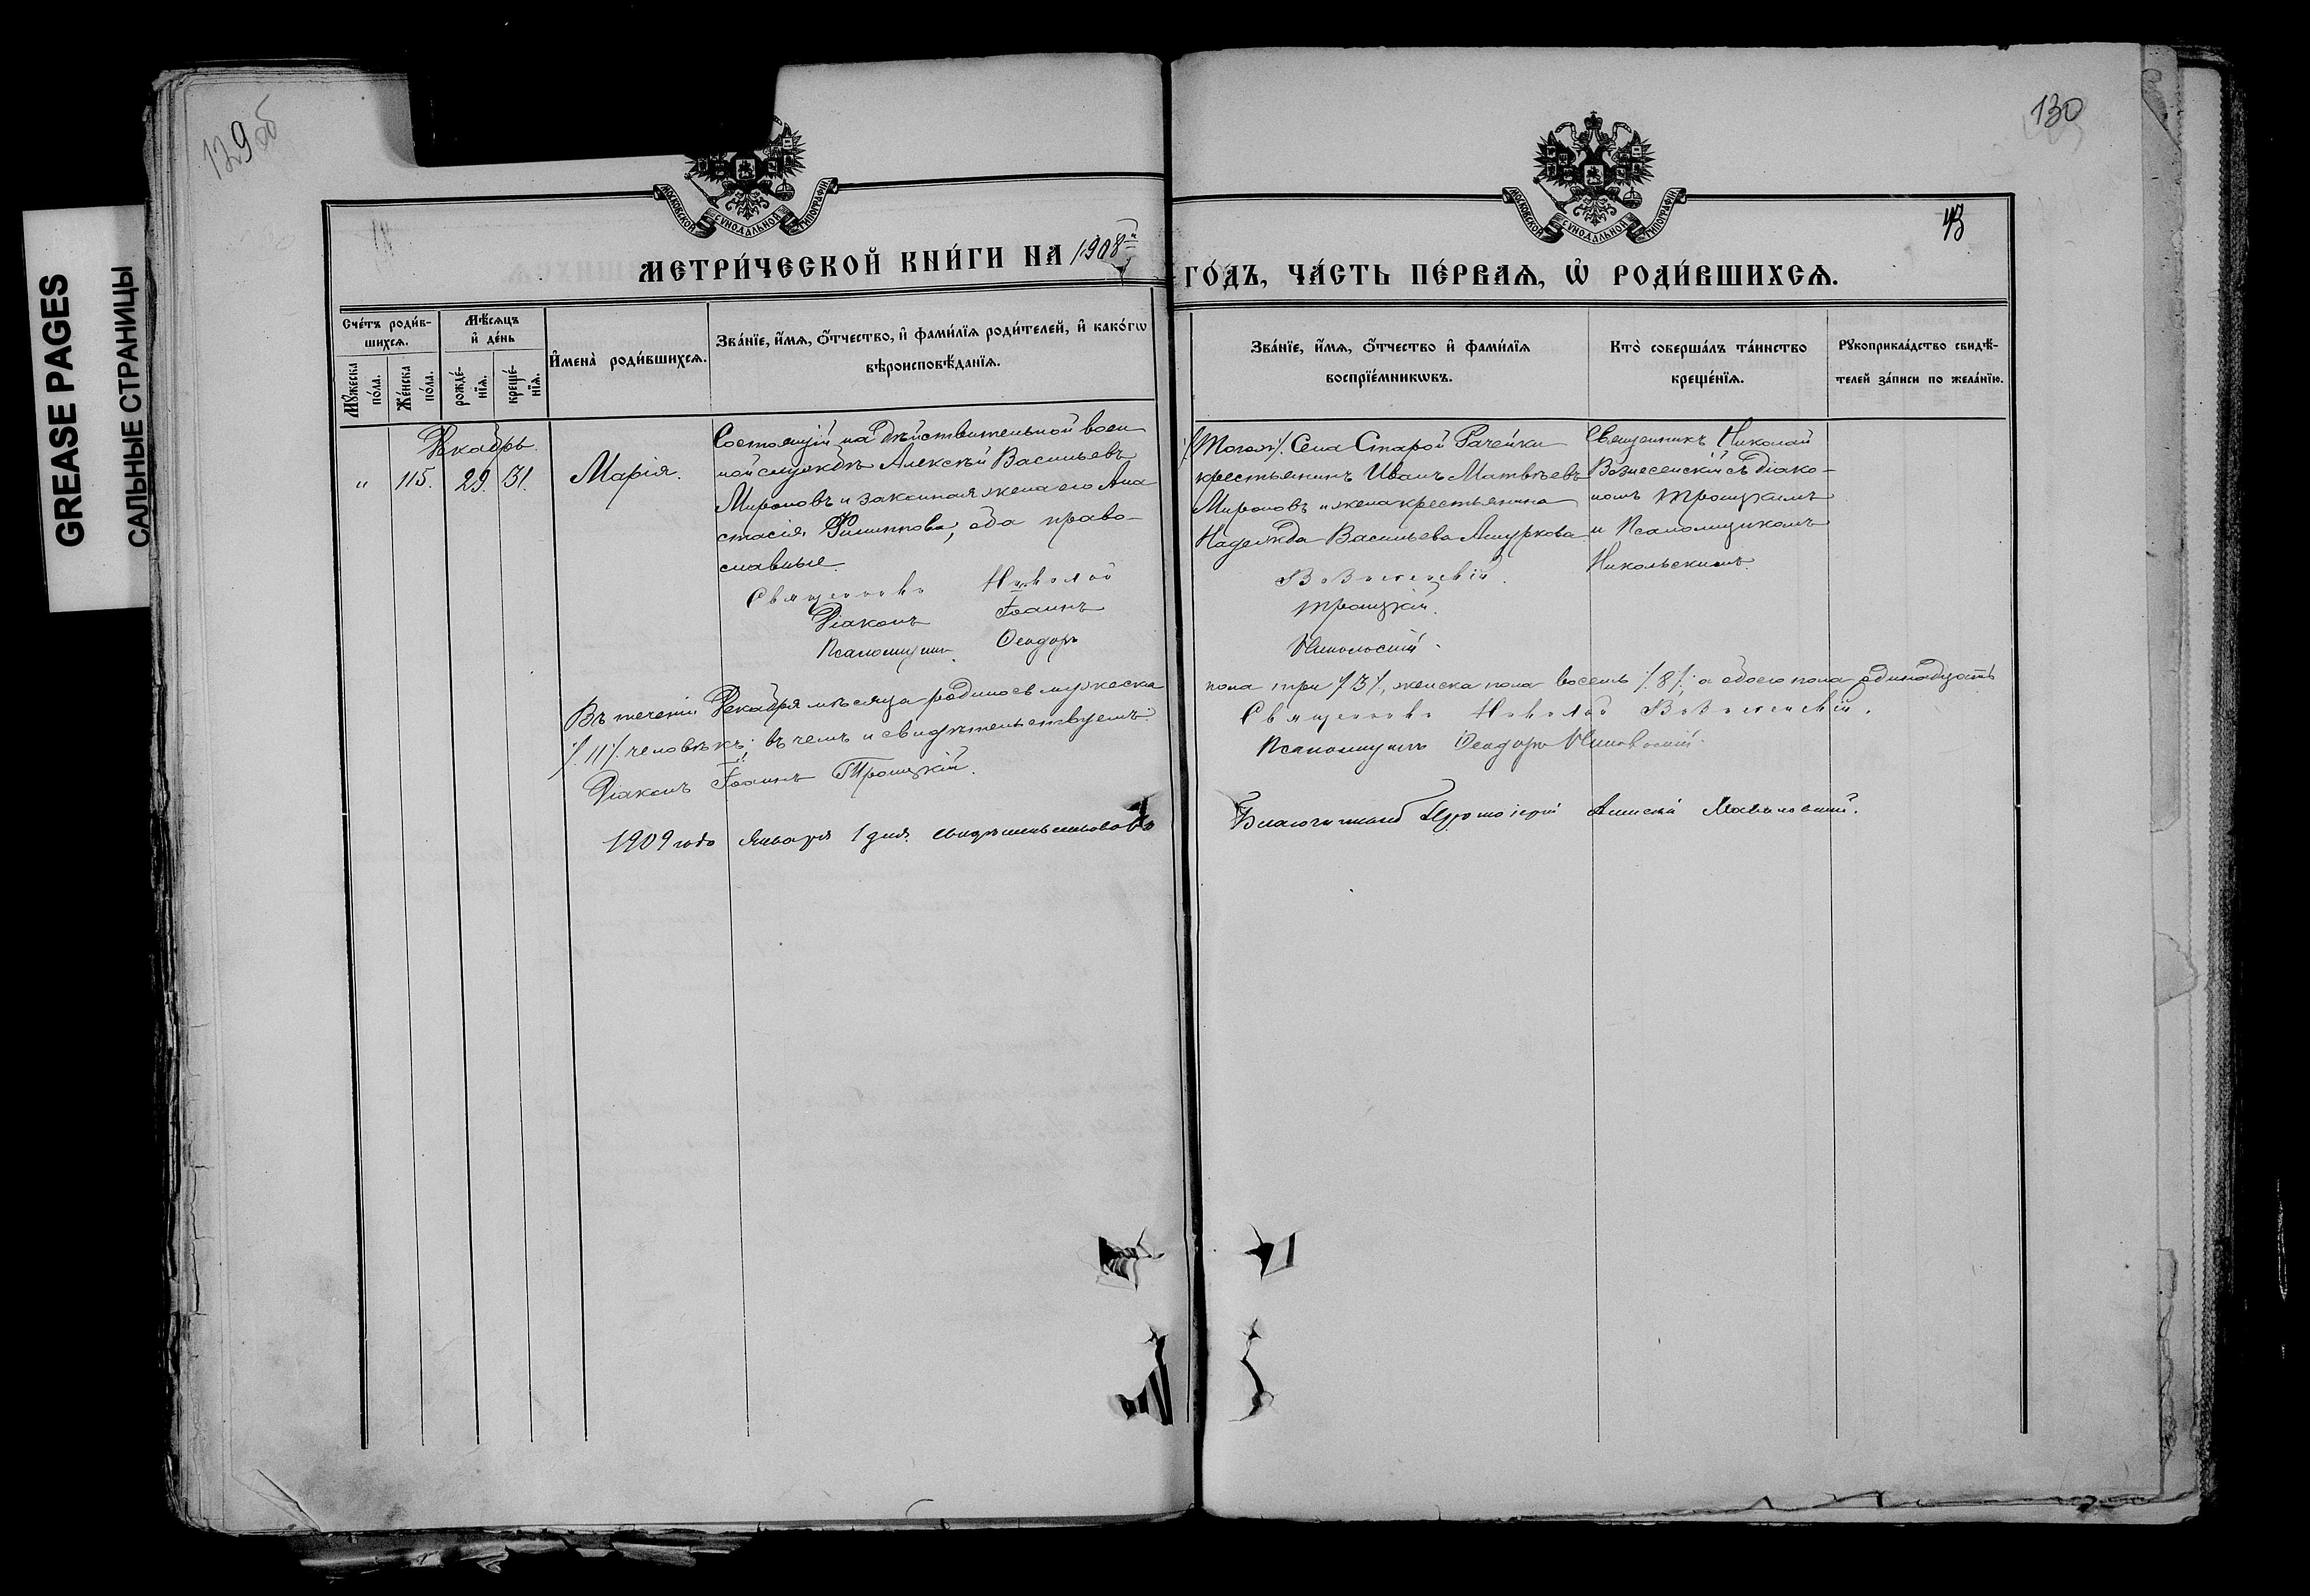 GREASE PAGES
САЛЬНЫЕ СТРАНИЦЫ
129 об
130
43
МОСКОВСКОЙ СѴНОДАЛЬНОЙ ТИПОГРАФІИ
МОСКОВСКОЙ СѴНОДАЛЬНОЙ ТИПОГРАФІИ
МЕТРИ́ЧЕСКОЙ КНИ́ГИ НА 1908й
ГО́ДЪ, ЧА́СТЬ ПЕ́РВАѦ, Ѡ҆ РОДИ́ВШИХСѦ.
Сче́тъ роди́в-
шихсѧ.
Мѣ́сѧцъ
и҆ де́нь
Мꙋ́жеска
по́ла.
Же́нска
по́ла.
рожде́-
нїѧ.
креще́-
нїѧ.
И҆мена̀ роди́вшихсѧ.
Зва́нїе, и҆́мѧ, ѻ҆́тчество, и҆ фами́лїѧ роди́телей, и҆ како́гѡ
вѣроисповѣ́данїѧ.
Зва́нїе, и҆́мѧ, ѻ҆́тчество и҆ фами́лїѧ
воспрїе́мникѡвъ.
Кто̀ соверша́лъ та́инство
креще́нїѧ.
Рꙋкоприкла́дство свидѣ́-
телей за́писи по жела́нїю.
Декабрь.
" 115. 29. 31. Марія.
Состоящій на дѣйствительной воен
ной службѣ Алексѣй Васильевъ
Мироновъ и законная жена его Ана
стасія Филиппова, оба право-
славные.
Села Старой Рачейки
крестьянинъ Иванъ Матвѣевъ
Мироновъ и жена крестьянина
Надежда Васильева Ашуркова.
Священникъ Николай
Вознесенскій съ діако-
номъ Троицкимъ
и Псаломщикомъ
Никольскимъ.
Священникъ Николай Вознесенскій.
Діаконъ Іоаннъ Троицкій.
Псаломщикъ Ѳеодоръ Никольскій.
Въ теченіи Декабря мѣсяца родилось мужеска пола три /3/, женска пола восемь /.8/.; а обоего пола одинадцать
/.11/. человѣкъ; въ чемъ и свидѣтельствуемъ: Священникъ Николай Вознесенскій.
Діаконъ Іоаннъ Троицкій. Псаломщикъ Ѳеодоръ Никольскій.
1909 года Января 1 дня. свидѣтельствовалъ Благочинный Протоіерей Алексѣй